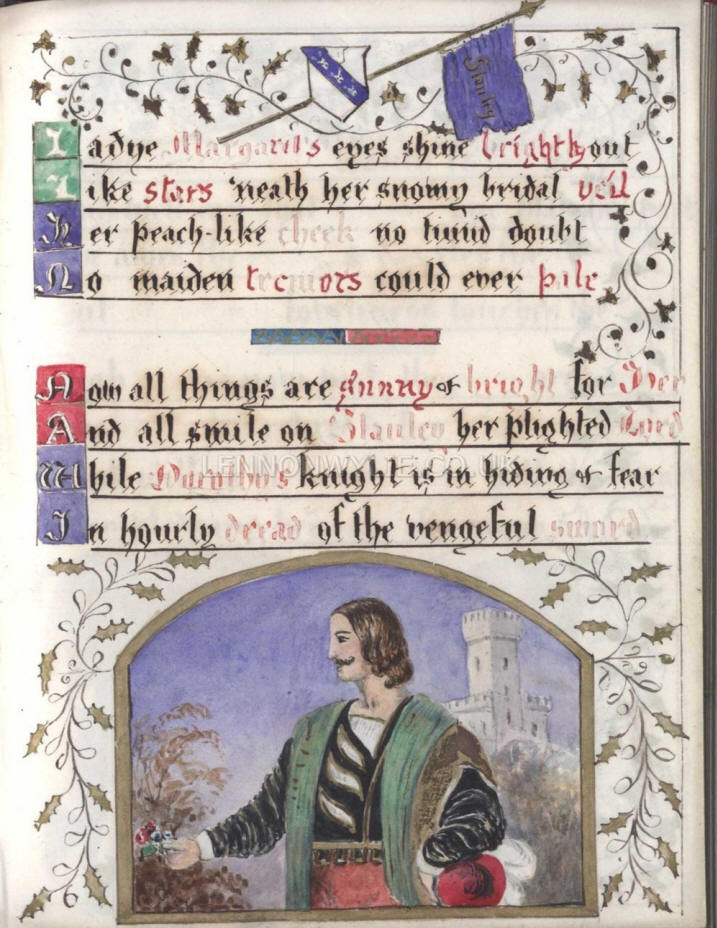 Stanley
Ladye Margaret's eyes shine brightly out
Like stars 'neath her snowy bridal veil
Her peach-like cheek no timid doubt
No maiden tremors could ever pale.
Now all things are sunny & bright for Her
And all smile on Stanley her plighted Lord
While Dorothy's knight is in hiding & fear
In hourly dread of the vengeful sword
LENNONWYLIE.CO.UK